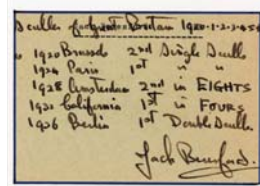 Sculler for Great Britain 1920-1-2-3-4-5-6
1920 Brussels 2nd Single Sculls
1924 Paris 1st " "
1928 Amsterdam 2nd in EIGHTS
1932 California 1st in FOURS
1936 Berlin 1st Double Sculls
Jack Beresford.